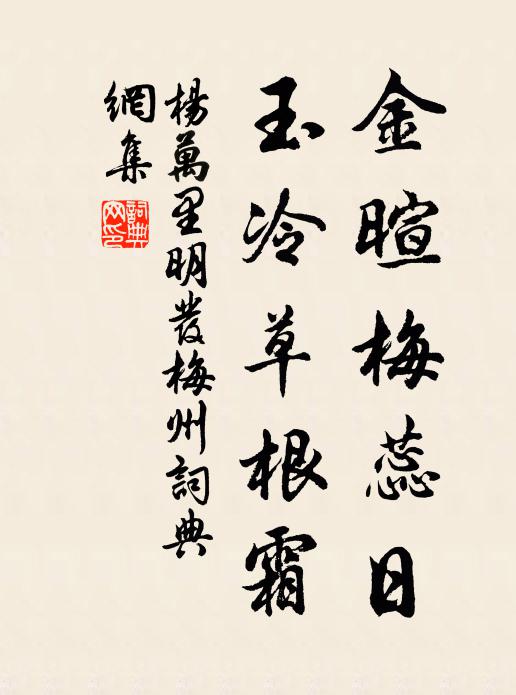 金暄梅蕊日
玉冷草根霜
楊萬里明發梅州詞典
網集
詞典網印